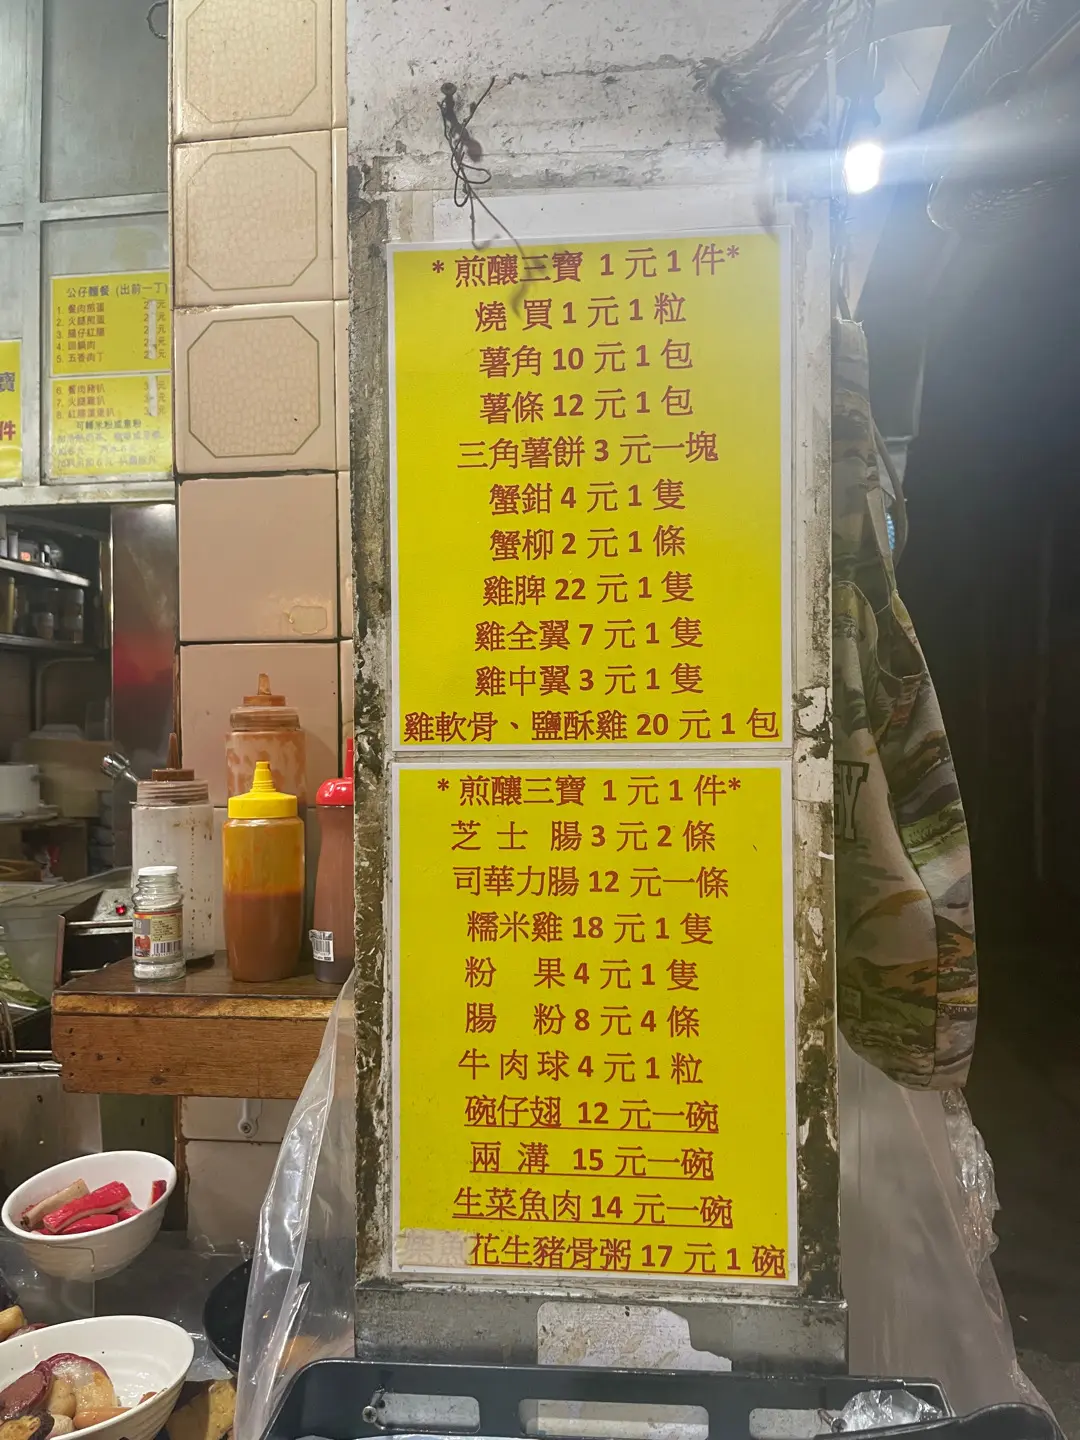 公仔麵餐 (出前一丁)
1. 餐肉煎蛋
2. 火腿煎蛋
3. 腸仔紅腸
4. 回鍋肉
5. 五香肉丁
6. 餐肉豬扒
7. 火腿雞扒
可轉米粉或意粉
寶
件
*煎釀三寶 1元1件*
燒 買1元1粒
薯角10元1包
薯條12元1包
三角薯餅3元一塊
蟹鉗4元1隻
蟹柳2元1條
雞脾22元1隻
雞全翼7元1隻
雞中翼3元1隻
雞軟骨、鹽酥雞20元1包
*煎釀三寶 1元1件*
芝 士 腸3元2條
司華力腸12元一條
糯米雞18元1隻
粉 果4元1隻
腸 粉8元4條
牛肉球4元1粒
碗仔翅 12元一碗
兩 溝 15元一碗
生菜魚肉14元一碗
花生豬骨粥17元1碗